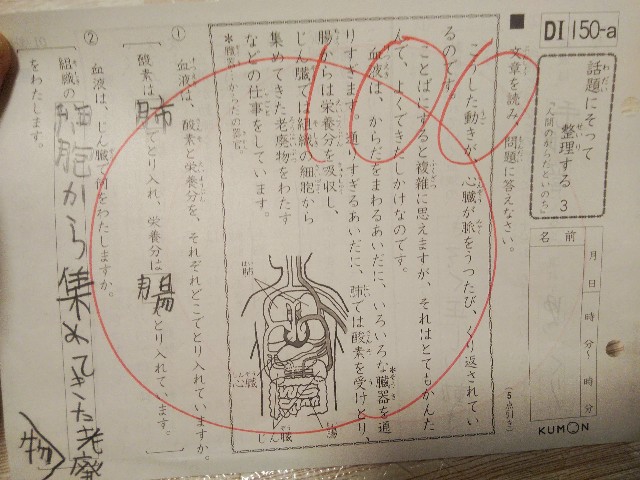 DI 150-a
話題にそって
整理する 3
「人間のからだといのち」
名前
月 日 時 分 〜 時 分
KUMON
■ 文章を読み、問題に答えなさい。
(5点引き)
こうした動きが、心臓が脈をうつたび、くり返されてい
るのです。
ことばにすると複雑に思えますが、それはとてもかんた
んで、よくできたしかけなのです。
血液は、からだをまわるあいだに、いろいろな臓器を通
りすぎます。通りすぎるあいだに、肺では酸素を受けとり、
腸からは栄養分を吸収し、
じん臓では組織の細胞から
集めてきた老廃物をわたす
などの仕事をしています。
肺
心臓
じん臓
腸
100
① 血液は、酸素と栄養分を、それぞれどこでとり入れていますか。
酸素は肺でとり入れ、栄養分は腸でとり入れています。
② 血液は、じん臓で何をわたしますか。
組織の細胞から集めてきた老廃物
をわたします。